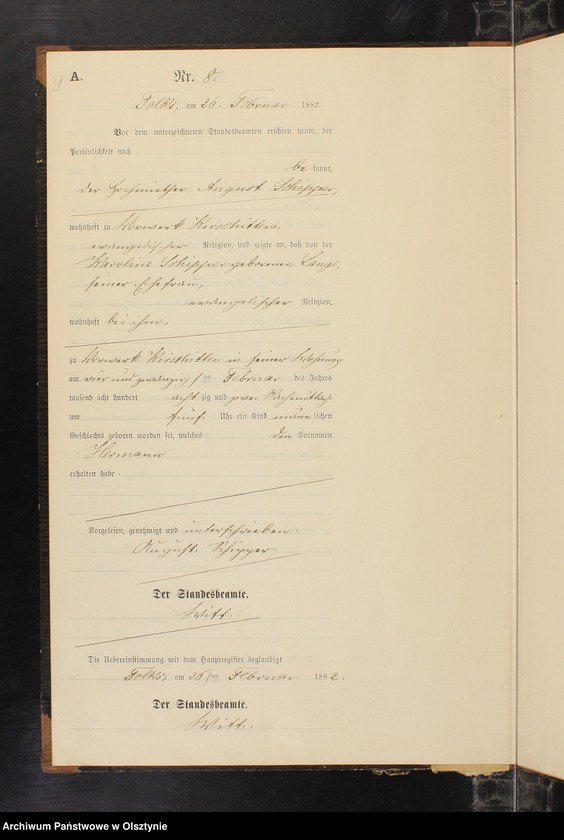 A.
Nr. 8.
Tolks, am 26. Februar 1882.
Vor dem unterzeichneten Standesbeamten erschien heute, der
Persönlichkeit nach
be kannt,
der August Schipper,
wohnhaft zu Vorwerk Kirschitten,
evangelischer Religion, und zeigte an, daß von der
Karoline Schipper geborenen Lange,
seiner Ehefrau,
evangelischer Religion,
wohnhaft bei ihm,
zu Vorwerk Kirschitten in seiner Wohnung
am vier und zwanzig sten Februar des Jahres
tausend acht hundert acht zig und zwei Nachmittags
um fünf Uhr ein Kind männ lichen
Geschlechts geboren worden sei, welches den Vornamen
Hermann
erhalten habe.
Vorgelesen, genehmigt und unterschrieben.
August Schipper
Der Standesbeamte.
Witt.
Die Uebereinstimmung mit dem Hauptregister beglaubigt
Tolks, am 26ten Februar 1882.
Der Standesbeamte.
Witt.
Archiwum Państwowe w Olsztynie